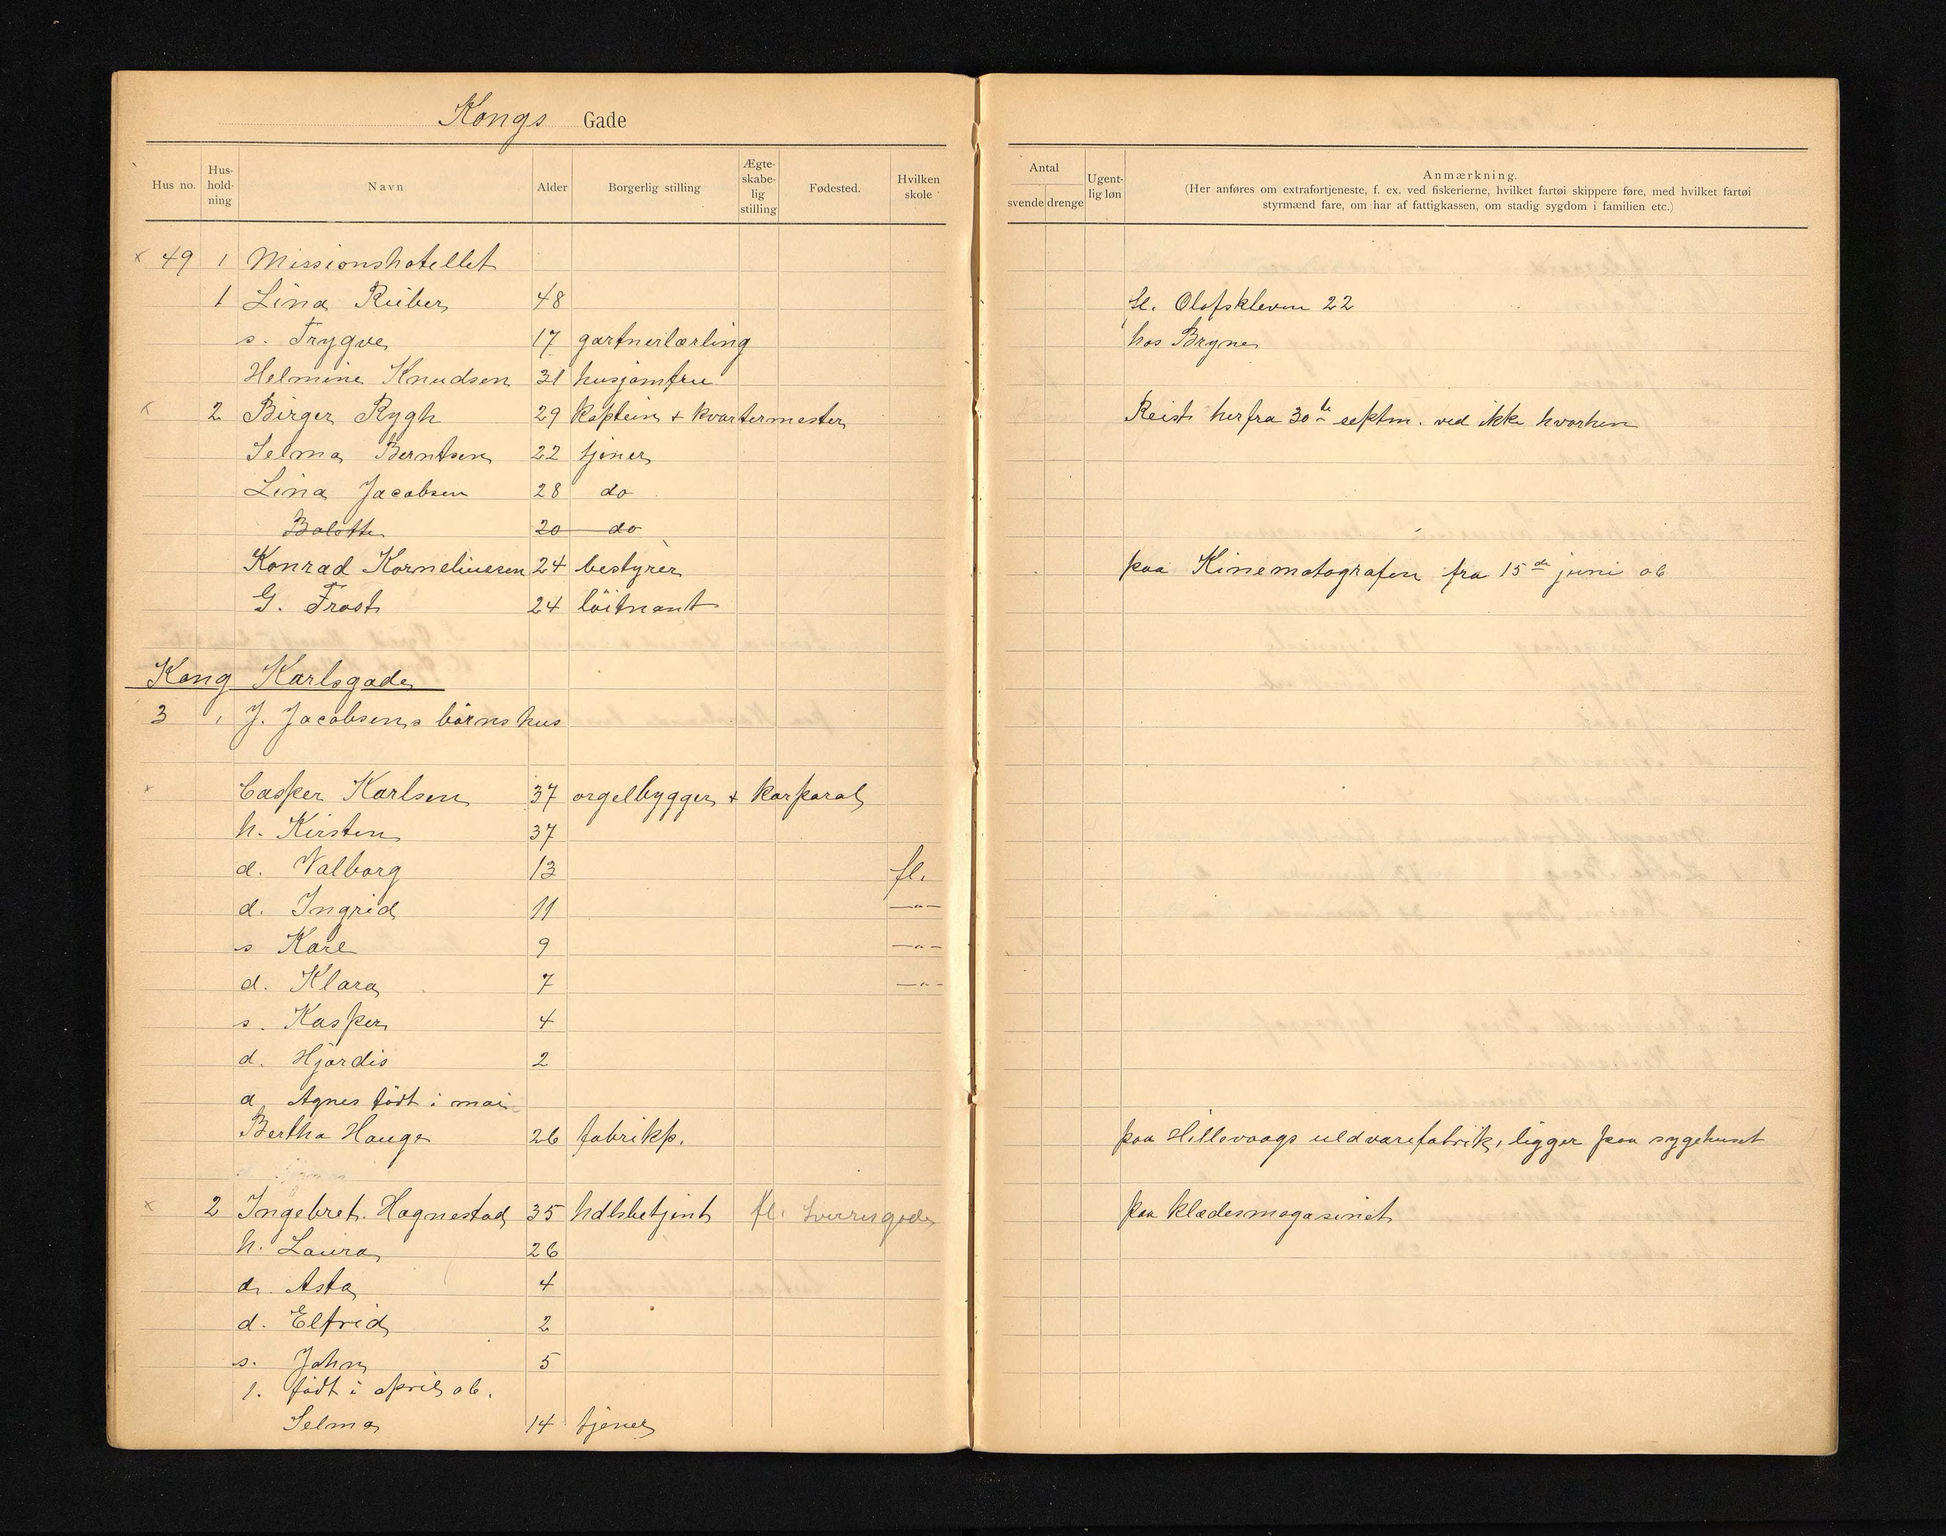 Kongs Gade
Hus no. Hus-hold-ning Navn Alder Borgerlig stilling Ægte-skabe-lig stilling Fødested. Hvilken skole
Antal svende drenge Ugent-lig løn Anmærkning.
(Her anføres om extrafortjeneste, f. ex. ved fiskerierne, hvilket fartøi skippere føre, med hvilket fartøi
styrmænd fare, om har af fattigkassen, om stadig sygdom i familien etc.)
x 49 1 Missionshotellet
1 Lina Rieber 48 fl. Olafskleven 22
s. Trygve 17 gartnerlærling hos Bryne
Helmine Knudsen 31 husjomfru
x 2 Birger Rygh 29 kaptein + kvartermester Reist herfra 30te septm. ved ikke hvorhen
Selma Berntsen 22 tjener
Lina Jacobsen 28 do
Bolette 20 do
Konrad Korneliussen 24 bestyrer paa Kinematografen fra 15de juni 06
G. Frost 24 löitnant
Kong Karlsgade
3 1 J. Jacobsens börns hus
x Casper Karlsen 37 orgelbygger + korporal
h. Kirsten 37
d. Valborg 13 fl.
d. Ingrid 11 —"—
s Kare 9 —"—
d. Klara 7 —"—
s. Kasper 4
d. Hjordis 2
d. Agnes födt i mai
Bertha Hauge 26 fabrikp. paa Hillevaags uldvarefabrik, ligger paa sygehuset
x 2 Ingebret Hognestad 35 hdlsbetjent fl. Sverresgade paa klædesmagasinet
h. Laura 26
d. Asta 4
d. Elfrid 2
s. John 5
1. födt i april 06.
Selma 14 tjener